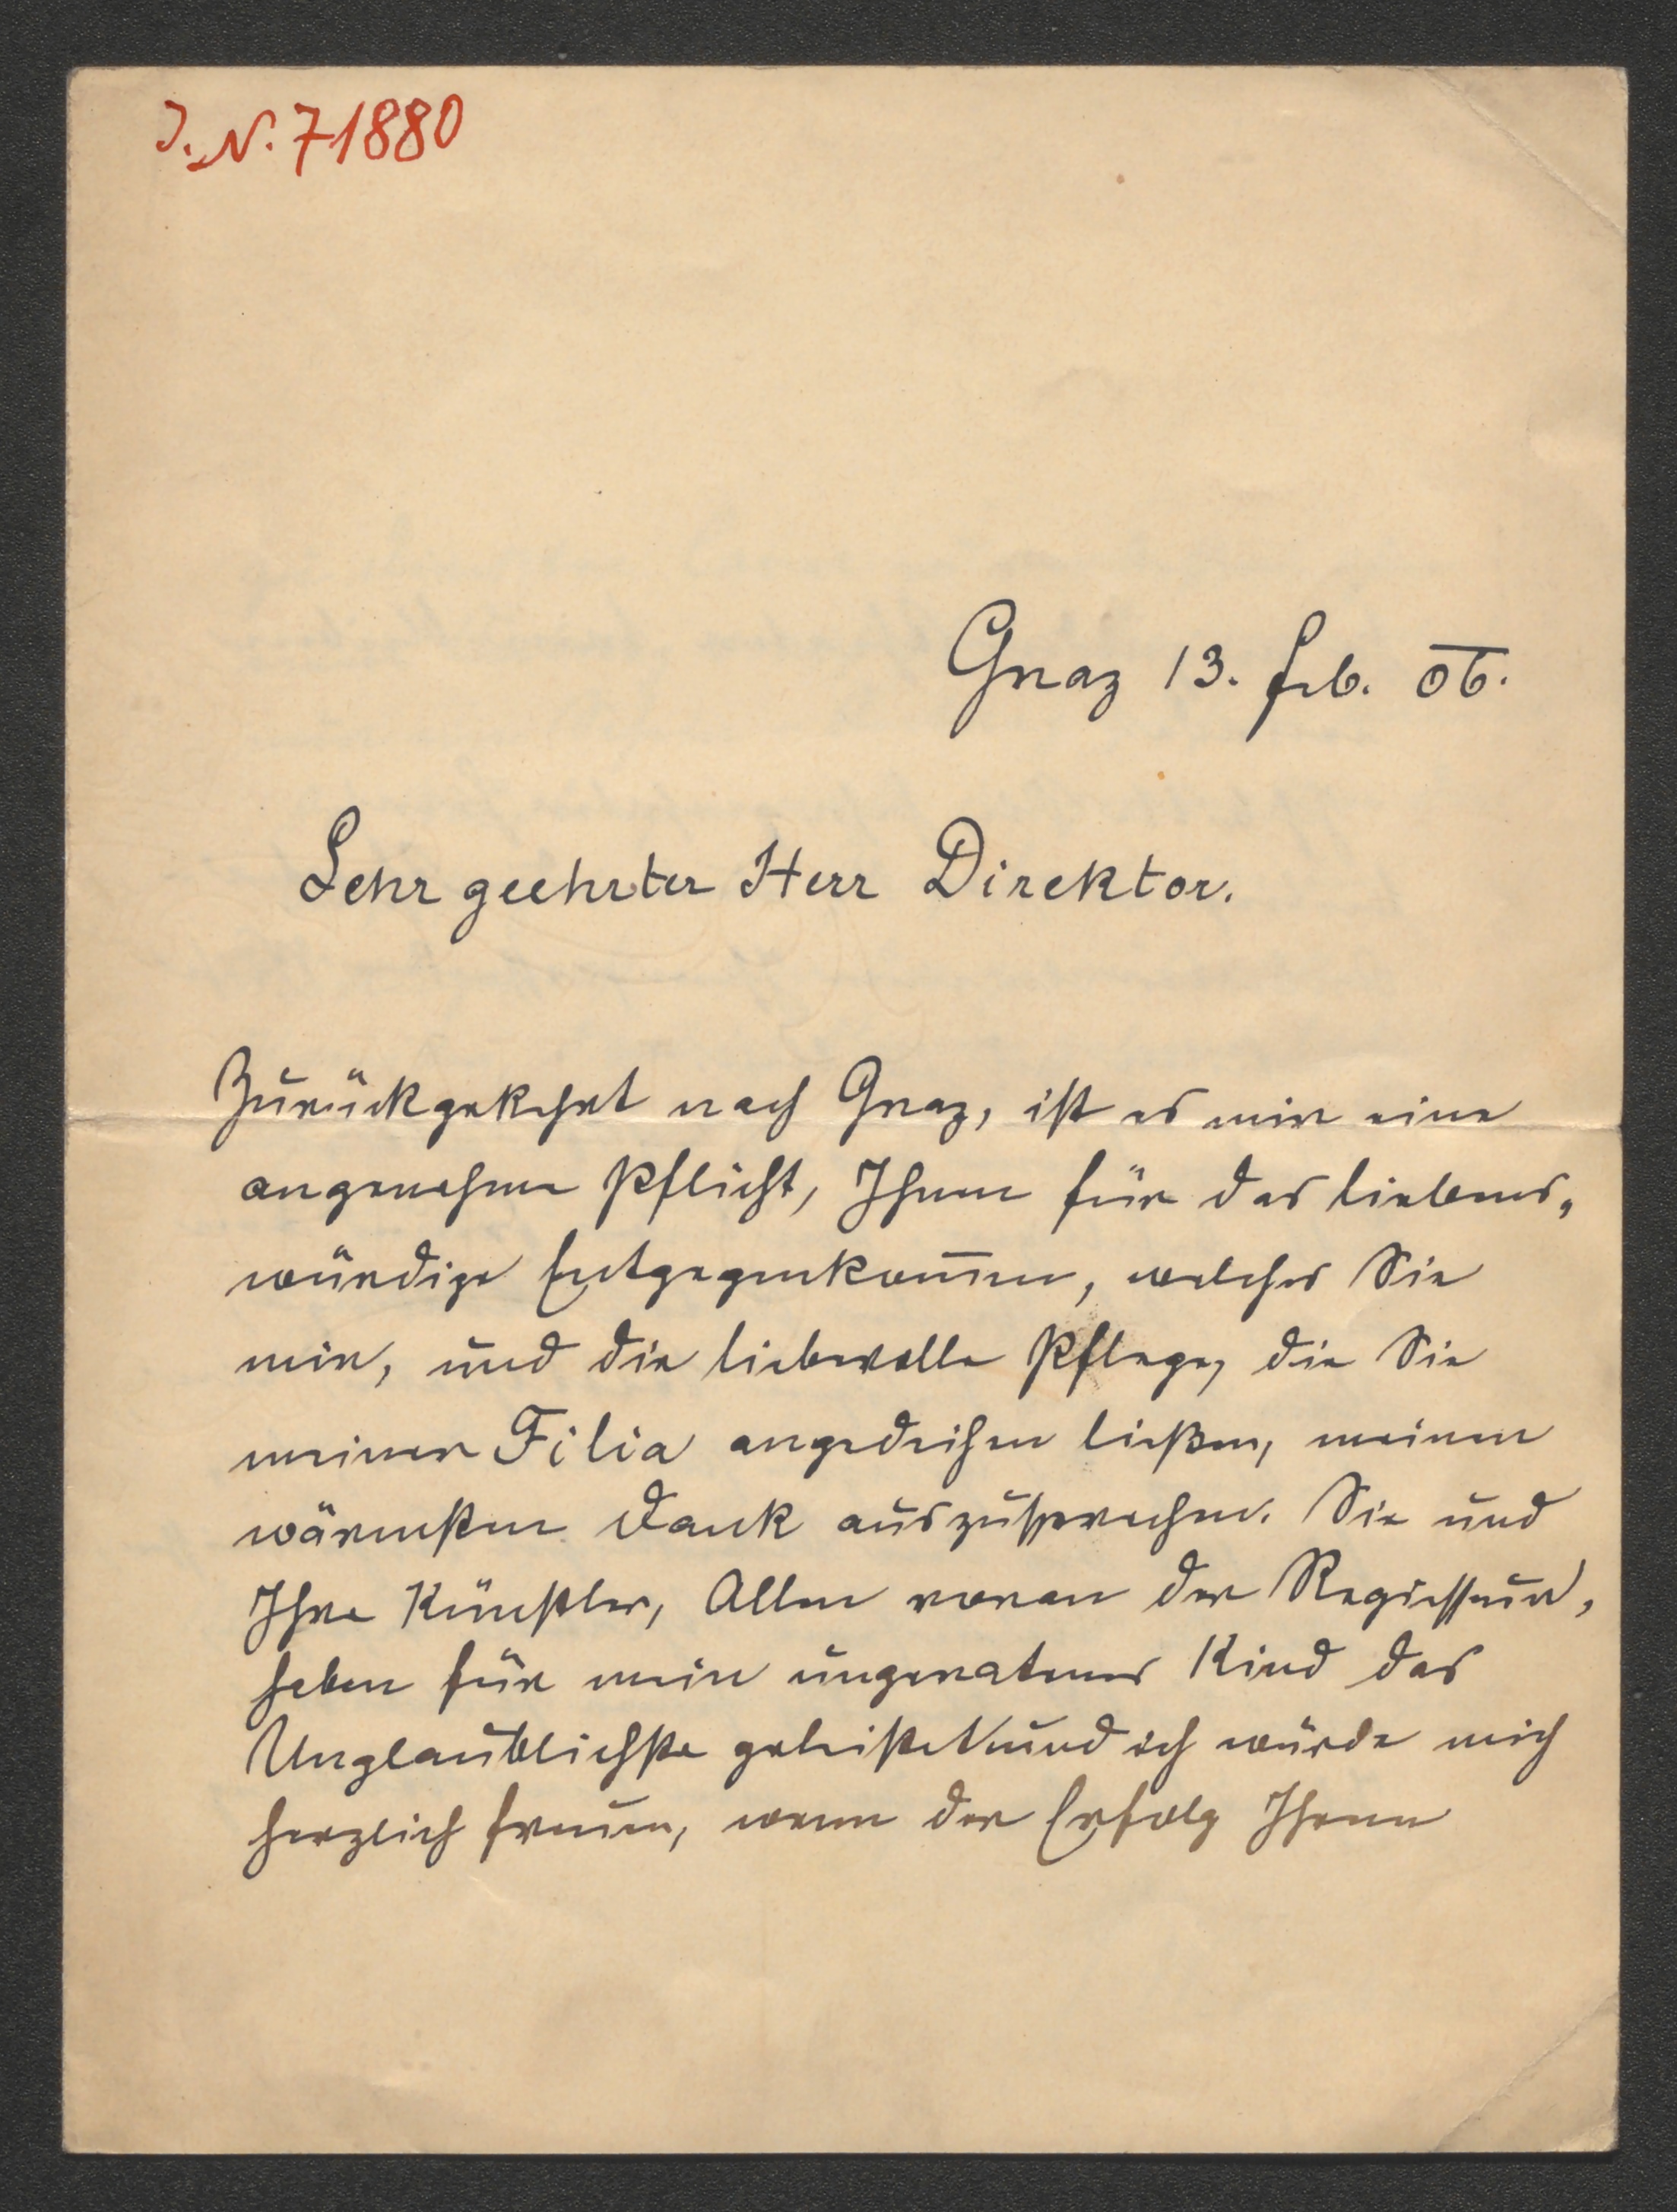 J. N. 71880
Graz 13. Feb. 06.
Sehr geehrter Herr Direktor.
Zurückgekehrt nach Graz, ist es mir eine
angenehme Pflicht, Ihnen für das liebens„
würdige Entgegenkom̅en, welches Sie
mir, und die liebevolle Pflege, die Sie
meiner Filia angedeihen ließen, meinen
wärmsten Dank auszusprechen. Sie und
Ihre Künstler, Allen voran der Regisseur,
haben für mein ungeratenes Kind das
Unglaublichste geleistet und ich würde mich
herzlich freuen, wenn der Erfolg Ihnen